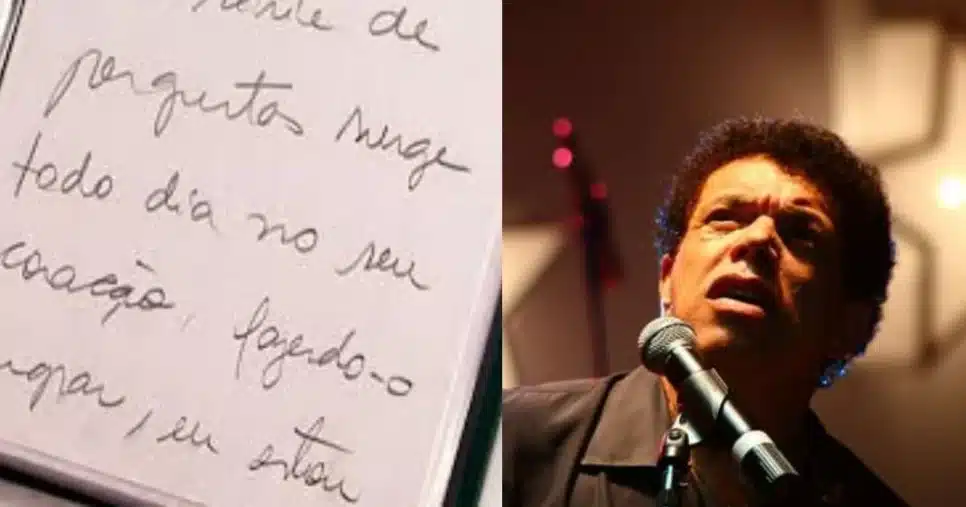 de
perguntas surge
todo dia no seu
coração, fazendo-o
, eu estou